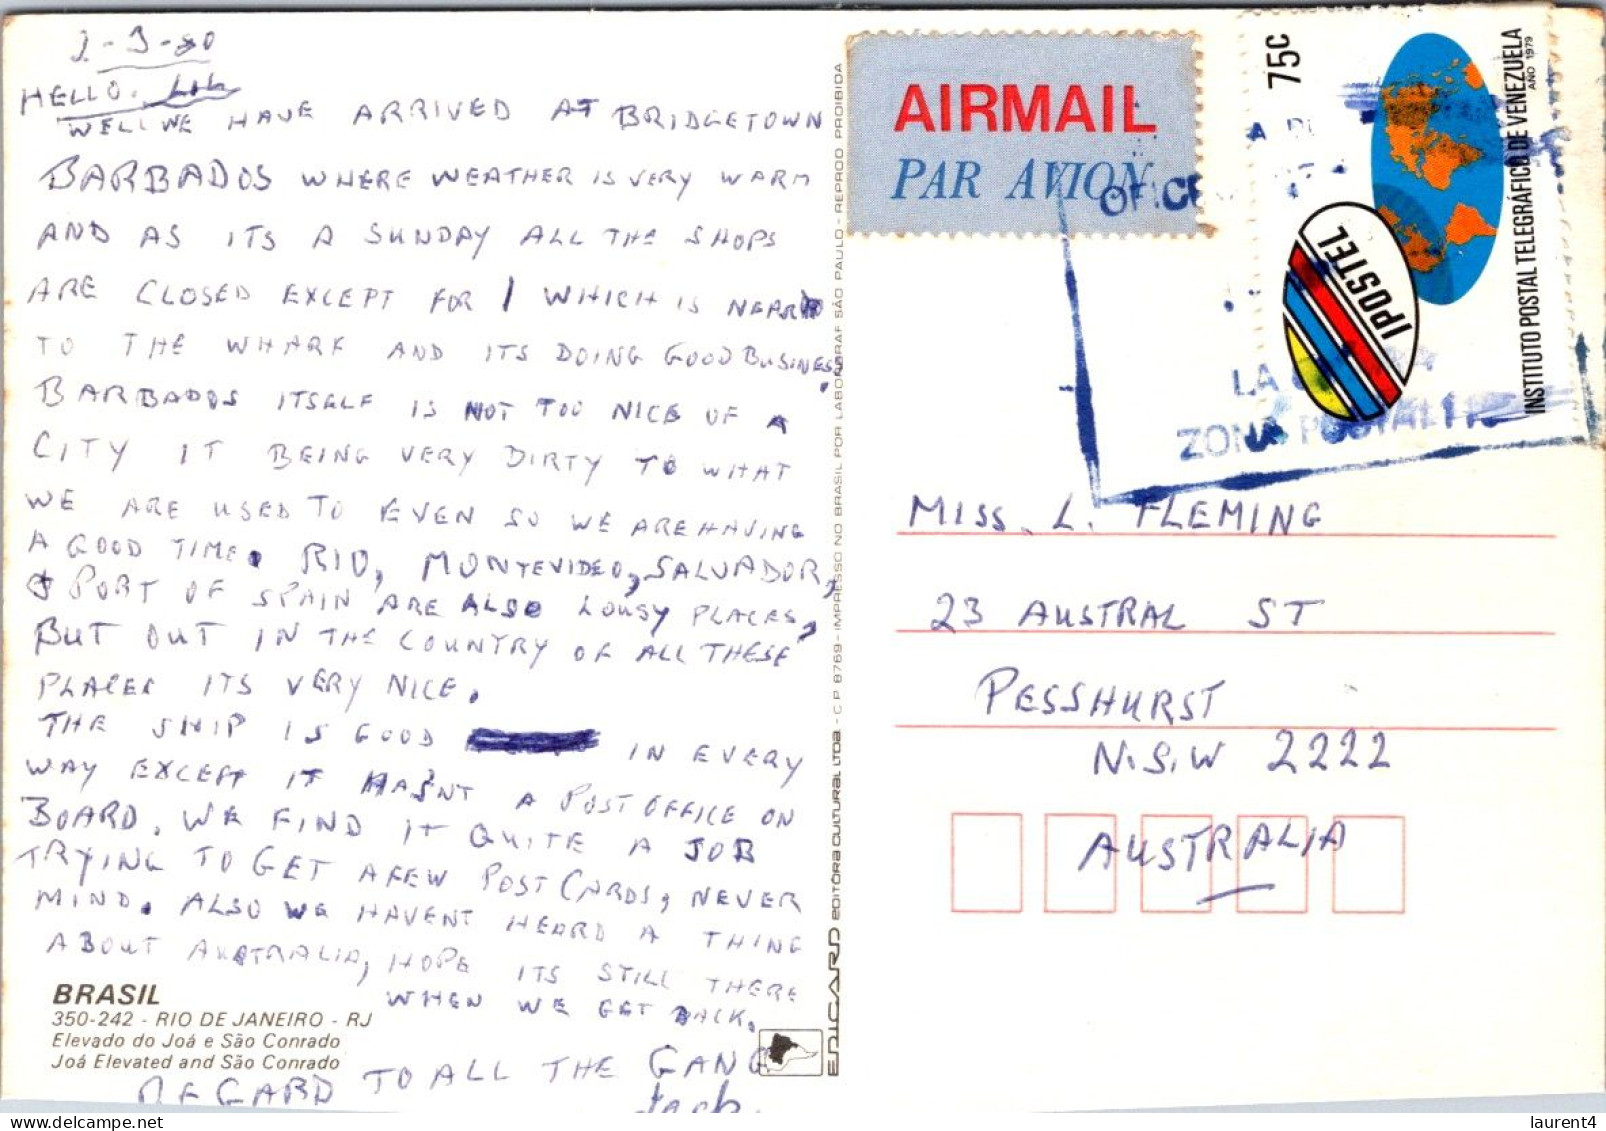 2-3-80
HELLO. Lil
WELL WE HAVE ARRIVED AT BRIDGETOWN
BARBADOS WHERE WEATHER IS VERY WARM
AND AS ITS A SUNDAY ALL THE SHOPS
ARE CLOSED EXCEPT FOR 1 WHICH IS NEAR
TO THE WHARF AND ITS DOING GOOD BUSINESS.
BARBADOS ITSELF IS NOT TOO NICE OF A
CITY IT BEING VERY DIRTY TO WHAT
WE ARE USED TO EVEN SO WE ARE HAVING
A GOOD TIME. RIO, MONTEVIDEO, SALVADOR,
& PORT OF SPAIN ARE ALSO LOUSY PLACES,
BUT OUT IN THE COUNTRY OF ALL THESE
PLACES ITS VERY NICE.
THE SHIP IS GOOD IN EVERY
WAY EXCEPT IT HASNT A POST OFFICE ON
BOARD. WE FIND IT QUITE A JOB
TRYING TO GET A FEW POST CARDS, NEVER
MIND. ALSO WE HAVENT HEARD A THING
ABOUT AUSTRALIA, HOPE ITS STILL THERE
WHEN WE GET BACK.
REGARD TO ALL THE GANG
Jack.
BRASIL
350-242 - RIO DE JANEIRO - RJ
Elevado do Joá e São Conrado
Joá Elevated and São Conrado
EDICARD EDITORA CULTURAL LTDA. - C.P. 8769 - IMPRESSO NO BRASIL POR LABORGRAF SÃO PAULO - REPROD PROIBIDA
AIRMAIL
PAR AVION
75c
IPOSTEL
INSTITUTO POSTAL TELEGRÁFICO DE VENEZUELA
AÑO 1979
OFICI
LA
ZONA POSTAL
MISS. L. FLEMING
23 AUSTRAL ST
PESSHURST
N.S.W 2222
AUSTRALIA
laurent4